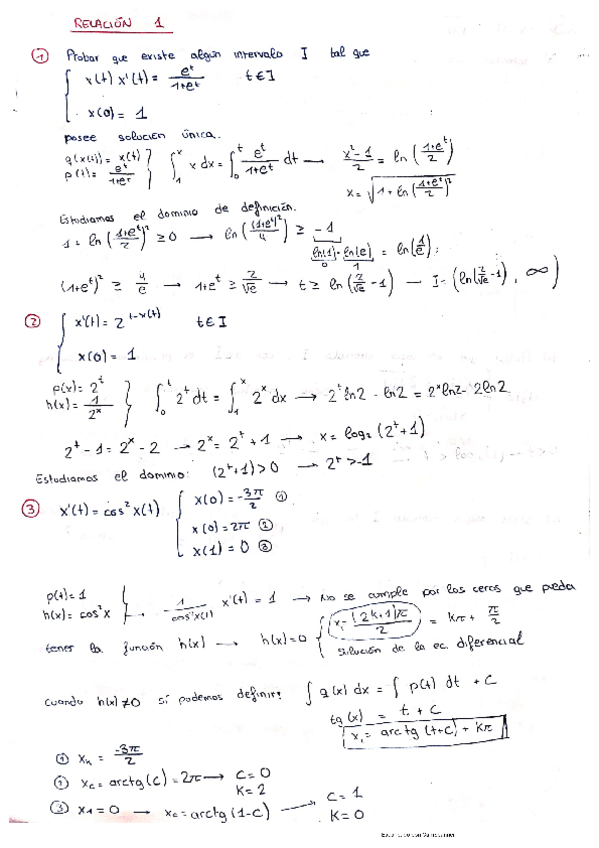 RELACIÓN 1
① Probar que existe algún intervalo I tal que
{ x(t) x'(t) = e^t/(1+e^t) t ∈ I
x(0) = 1
posee solución única.
g(x(t)) = x(t) } ∫_1^x x dx = ∫_0^t e^t/(1+e^t) dt → (x²-1)/2 = ln((1+e^t)/2)
p(t) = e^t/(1+e^t)
x = √(1 + ln((1+e^t)/2)²)
Estudiamos el dominio de definición.
1 = ln((1+e^t)/2)² ≥ 0 → ln((1+e^t)²/4) ≥ -1
ln(1) - ln(e) = ln(1/e);
0 1
(1+e^t)² ≥ 4/e → 1+e^t ≥ 2/√e → t ≥ ln(2/√e - 1) — I = (ln(2/√e - 1), ∞)
② { x'(t) = 2^(t-x(t)) t ∈ I
x(0) = 1
p(x) = 2^t } ∫_0^t 2^t dt = ∫_1^x 2^x dx → 2^t ln2 - ln2 = 2^x ln2 - 2ln2
h(x) = 1/2^x
2^t - 1 = 2^x - 2 → 2^x = 2^t + 1 → x = log₂(2^t+1)
Estudiamos el dominio: (2^t+1) > 0 → 2^t > -1
③ x'(t) = cos² x(t) { x(0) = -3π/2 ①
x(0) = 2π ②
x(1) = 0 ③
p(t) = 1 } → 1/cos²x(t) x'(t) = 1 → No se cumple por los ceros que pueda
h(x) = cos² x
tener la función h(x) → h(x) = 0 { x = (2k+1)π/2 = kπ + π/2
solución de la ec. diferencial
Cuando h(x) ≠ 0 sí podemos definir: ∫ g(x) dx = ∫ p(t) dt + C
tg(x) = t + C
x = arctg(t+c) + kπ
① x_k = -3π/2
② x_c = arctg(c) = 2π → C = 0
K = 2
③ x1 = 0 → x_c = arctg(1-c) → C = 1
K = 0